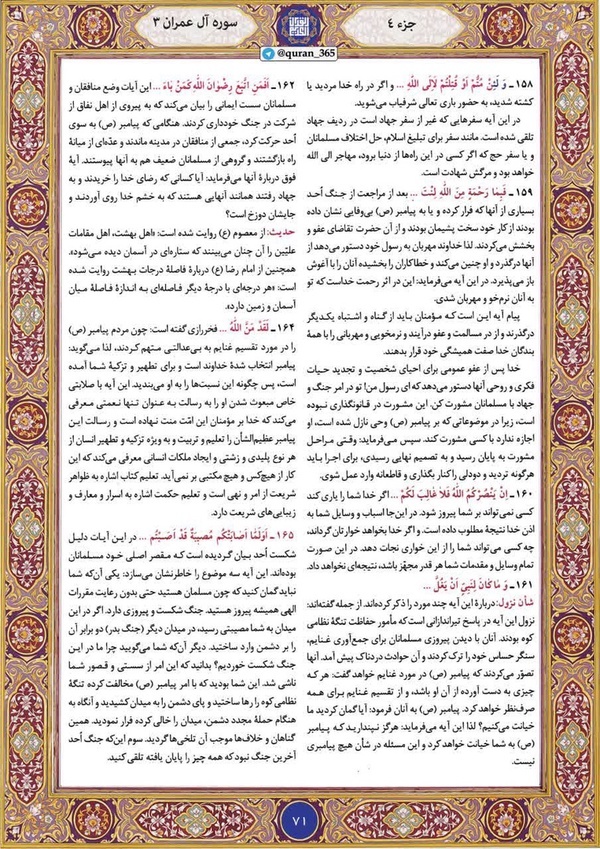 جزء ۴
سوره آل عمران ۳
@quran_365
۱۵۸ـ وَ لَئِنْ مُتُّمْ أَوْ قُتِلْتُمْ لَإِلَى اللَّهِ ... و اگر در راه خدا مردید یا
کشته شدید، به حضور باری تعالی شرفیاب می‌شوید.
در این آیه سفرهایی که غیر از سفر جهاد است در ردیف جهاد
تلقی شده است. مانند سفر برای تبلیغ اسلام، حل اختلاف مسلمانان
و یا سفر حج که اگر کسی در این راه‌ها از دنیا برود، مهاجر الی الله
خواهد بود و مرگش شهادت است.
۱۵۹ـ فَبِما رَحْمَةٍ مِنَ اللَّهِ لِنْتَ ... بعد از مراجعت از جنگ اُحد
بسیاری از آنها که فرار کرده و یا به پیامبر (ص) بی‌وفایی نشان داده
بودند از کار خود سخت پشیمان بودند و از آن حضرت تقاضای عفو و
بخشش می‌کردند. لذا خداوند مهربان به رسول خود دستور می‌دهد از
آنها درگذرد و او چنین می‌کند و خطاکاران را بخشیده آنان را با آغوش
باز می‌پذیرد. در این آیه می‌فرماید: این در اثر رحمت خداست که تو
به آنان نرم‌خو و مهربان شدی.
پیام آیه این است که مؤمنان باید از گناه و اشتباه یکدیگر
درگذرند و از در مسالمت و عفو درآیند و نرمخویی و مهربانی را با همهٔ
بندگان خدا صفت همیشگی خود قرار بدهند.
خدا پس از عفو عمومی برای احیای شخصیت و تجدید حیات
فکری و روحی آنها دستور می‌دهد که ای رسول من! تو در امر جنگ و
جهاد با مسلمانان مشورت کن. این مشورت در قانونگذاری نبوده
است، زیرا در موضوعاتی که بر پیامبر (ص) وحی نازل شده است، او
اجازه ندارد با کسی مشورت کند. سپس می‌فرماید: وقتی مراحل
مشورت به پایان رسید و به تصمیم نهایی رسیدی، برای اجرا باید
هرگونه تردید و دودلی را کنار بگذاری و قاطعانه وارد عمل شوی.
۱۶۰ـ إِنْ يَنْصُرْكُمُ اللَّهُ فَلا غالِبَ لَكُمْ ... اگر خدا شما را یاری کند
کسی نمی‌تواند بر شما پیروز شود. در این‌جا اسباب و وسایل شما به
اذن خدا نتیجهٔ مطلوب داده است. و اگر خدا بخواهد خوارتان گرداند،
چه کسی می‌تواند شما را از این خواری نجات دهد. در این صورت
تمام وسایل و مقدمات شما هر قدر مجهّز باشد، نتیجه‌ای نخواهد داد.
۱۶۱ـ وَ ما كانَ لِنَبِيٍّ أَنْ يَغُلَّ ...
شأن نزول: دربارهٔ این آیه چند مورد را ذکر کرده‌اند. از جمله گفته‌اند:
نزول این آیه در پاسخ تیراندازانی است که مأمور حفاظت تنگهٔ نظامی
کوه بودند. آنان با دیدن پیروزی مسلمانان برای جمع‌آوری غنایم،
سنگر حساس خود را ترک کردند و آن حوادث دردناک پیش آمد. آنها
تصوّر می‌کردند که پیامبر (ص) در مورد غنایم خواهد گفت: هر که
چیزی به دست آورده از آن او باشد، و از تقسیم غنایم برای همه
صرف‌نظر خواهد کرد. پیامبر (ص) به آنان فرمود: آیا گمان کردید ما
خیانت می‌کنیم؟ لذا این آیه می‌فرماید: هرگز نپندارید که پیامبر
(ص) به شما خیانت خواهد کرد و این مسئله در شأن هیچ پیامبری
نیست.
۱۶۲ـ أَفَمَنِ اتَّبَعَ رِضْوانَ اللَّهِ كَمَنْ باءَ ... این آیات وضع منافقان و
مسلمانان سست ایمانی را بیان می‌کند که به پیروی از اهل نفاق از
شرکت در جنگ خودداری کردند. هنگامی که پیامبر (ص) به سوی
اُحد حرکت کرد، جمعی از منافقان در مدینه ماندند و عدّه‌ای از میانهٔ
راه بازگشتند و گروهی از مسلمانان ضعیف هم به آنها پیوستند. آیهٔ
فوق دربارهٔ آنها می‌فرماید: آیا کسانی که رضای خدا را خریدند و به
جهاد رفتند همانند آنهایی هستند که به خشم خدا روی آوردند و
جایشان دوزخ است؟
حدیث: از معصوم (ع) روایت شده است: «اهل بهشت، اهل مقامات
علیّین را آن چنان می‌بینند که ستاره‌ای در آسمان دیده می‌شود».
همچنین از امام رضا (ع) دربارهٔ فاصلهٔ درجات بهشت روایت شده
است: «هر درجه‌ای با درجهٔ دیگر فاصله‌ای به اندازهٔ فاصلهٔ میان
آسمان و زمین دارد».
۱۶۴ـ لَقَدْ مَنَّ اللَّهُ ... فخررازی گفته است: چون مردم پیامبر (ص)
را در مورد تقسیم غنایم به بی‌عدالتی متهم کردند، لذا می‌گوید:
پیامبر انتخاب شدهٔ خداوند است و برای تطهیر و تزکیهٔ شما آمده
است، پس چگونه این نسبت‌ها را به او می‌بندید. این آیه با صلابتی
خاص مبعوث شدن او را به رسالت به عنوان تنها نعمتی معرفی
می‌کند که خدا بر مؤمنان این امّت منت نهاده است و رسالت این
پیامبر عظیم‌الشأن را تعلیم و تربیت و به ویژه تزکیه و تطهیر انسان از
هر نوع پلیدی و زشتی و ایجاد ملکات انسانی معرفی می‌کند که این
کار از هیچ‌کس و هیچ مکتبی بر نمی‌آید. تعلیم کتاب اشاره به ظواهر
شریعت از امر و نهی است و تعلیم حکمت اشاره به اسرار و معارف و
زیبایی‌های شریعت دارد.
۱۶۵ـ أَوَلَمَّا أَصابَتْكُمْ مُصِيبَةٌ قَدْ أَصَبْتُمْ ... در این آیات دلیل
شکست اُحد بیان گردیده است کـه مقصر اصلی خود مسلمانان
بوده‌اند. این آیه سه موضوع را خاطرنشان می‌سازد: یکی آن‌که شما
نباید گمان کنید که چون مسلمان هستید حتی بدون رعایت مقررات
الهی همیشه پیروز هستید. جنگ شکست و پیروزی دارد. اگر در این
میدان به شما مصیبتی رسید، در میدان دیگر (جنگ بدر) دو برابر آن
را بر دشمن وارد ساختید. دیگر آن‌که شما می‌گویید چرا ما در این
جنگ شکست خوردیم؟ بدانید که این امر از سستی و قصور شما
ناشی شد. این شما بودید که با امر پیامبر (ص) مخالفت کرده تنگهٔ
نظامی کوه را رها ساختید و پای دشمن را به میدان کشیدید و آنگاه به
هنگام حملهٔ مجدد دشمن، میدان را خالی کرده فرار نمودید. همین
گناهان و خلاف‌ها موجب آن تلخی‌ها گردید. سوم این‌که جنگ اُحد
آخرین جنگ نبود که همه چیز را پایان یافته تلقی کنید.
۷۱